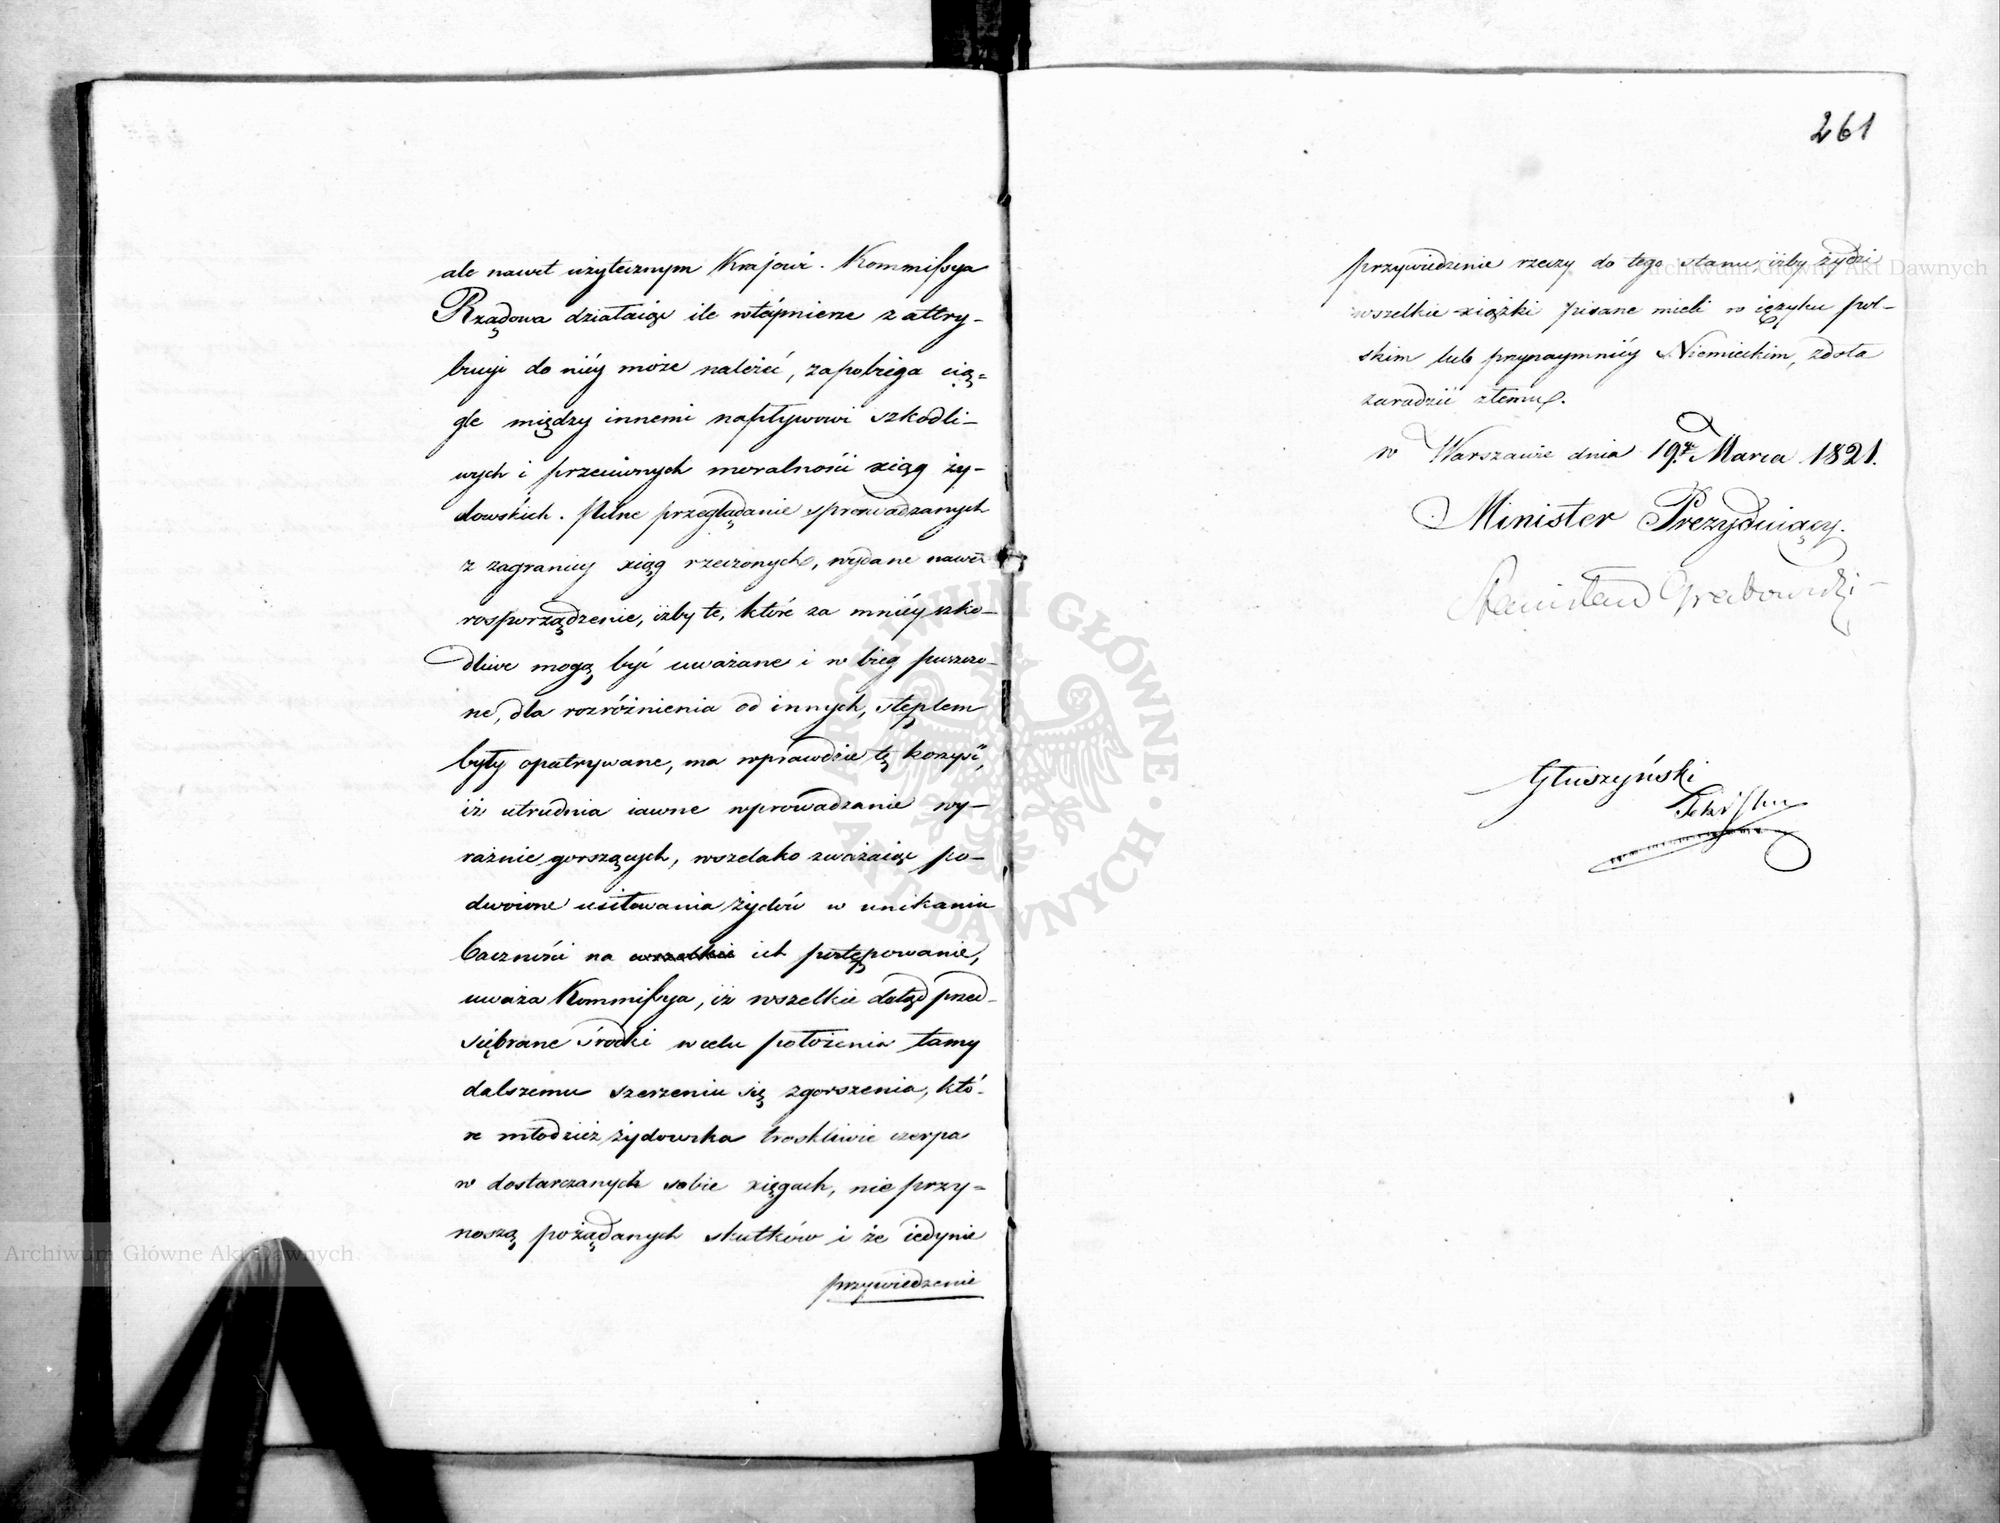 ale nawet użytecznym Krajowi. Kommissya
Rządowa działaiąc ile w téymierze z attry-
bucyi do niéy może należéć, zapobiega cią=
gle między innemi napływowi szkodli-
wych i przeciwnych moralności xiąg ży-
dowskich. Pilne przeglądanie sprowadzanych
z zagranicy xiąg rzeczonych, wydane nawet
rosporządzenie, iżby te, które za mniéy szko-
dliwe mogą być uważane i w bieg puszczo-
ne, dla rozróżnienia od innych, stęplem
były opatrywane, ma wprawdzie tę korzyść,
iż utrudnia iawne wprowadzanie wy-
raźnie gorszących, wszelako zważaiąc po-
dwoione usiłowania żydów w unikaniu
baczności na wszelkie ich postępowanie,
uważa Kommissya, iż wszelkie dotąd przed-
sięwzięte środki w celu położenia tamy
dalszemu szerzeniu się zgorszenia, któ-
re młodzież żydowska troskliwie czerpa
w dostarczanych sobie xięgach, nie przy=
noszą pożądanych skutków i że iedynie
przywiedzenie
261
przywiedzenie rzeczy do tego stanu iżby żydzi
wszelkie xiążki pisane mieli w ięzyku pol-
skim lub przynaymniéy Niemieckim, zdoła
zaradzić złemu.
w Warszawie dnia 19. Marca 1821.
Minister Prezyduiący.
Stanisław Grabowski
Głuszyński
ARCHIWUM GŁÓWNE AKT DAWNYCH
Archiwum Główne Akt Dawnych
Archiwum Główne Akt Dawnych